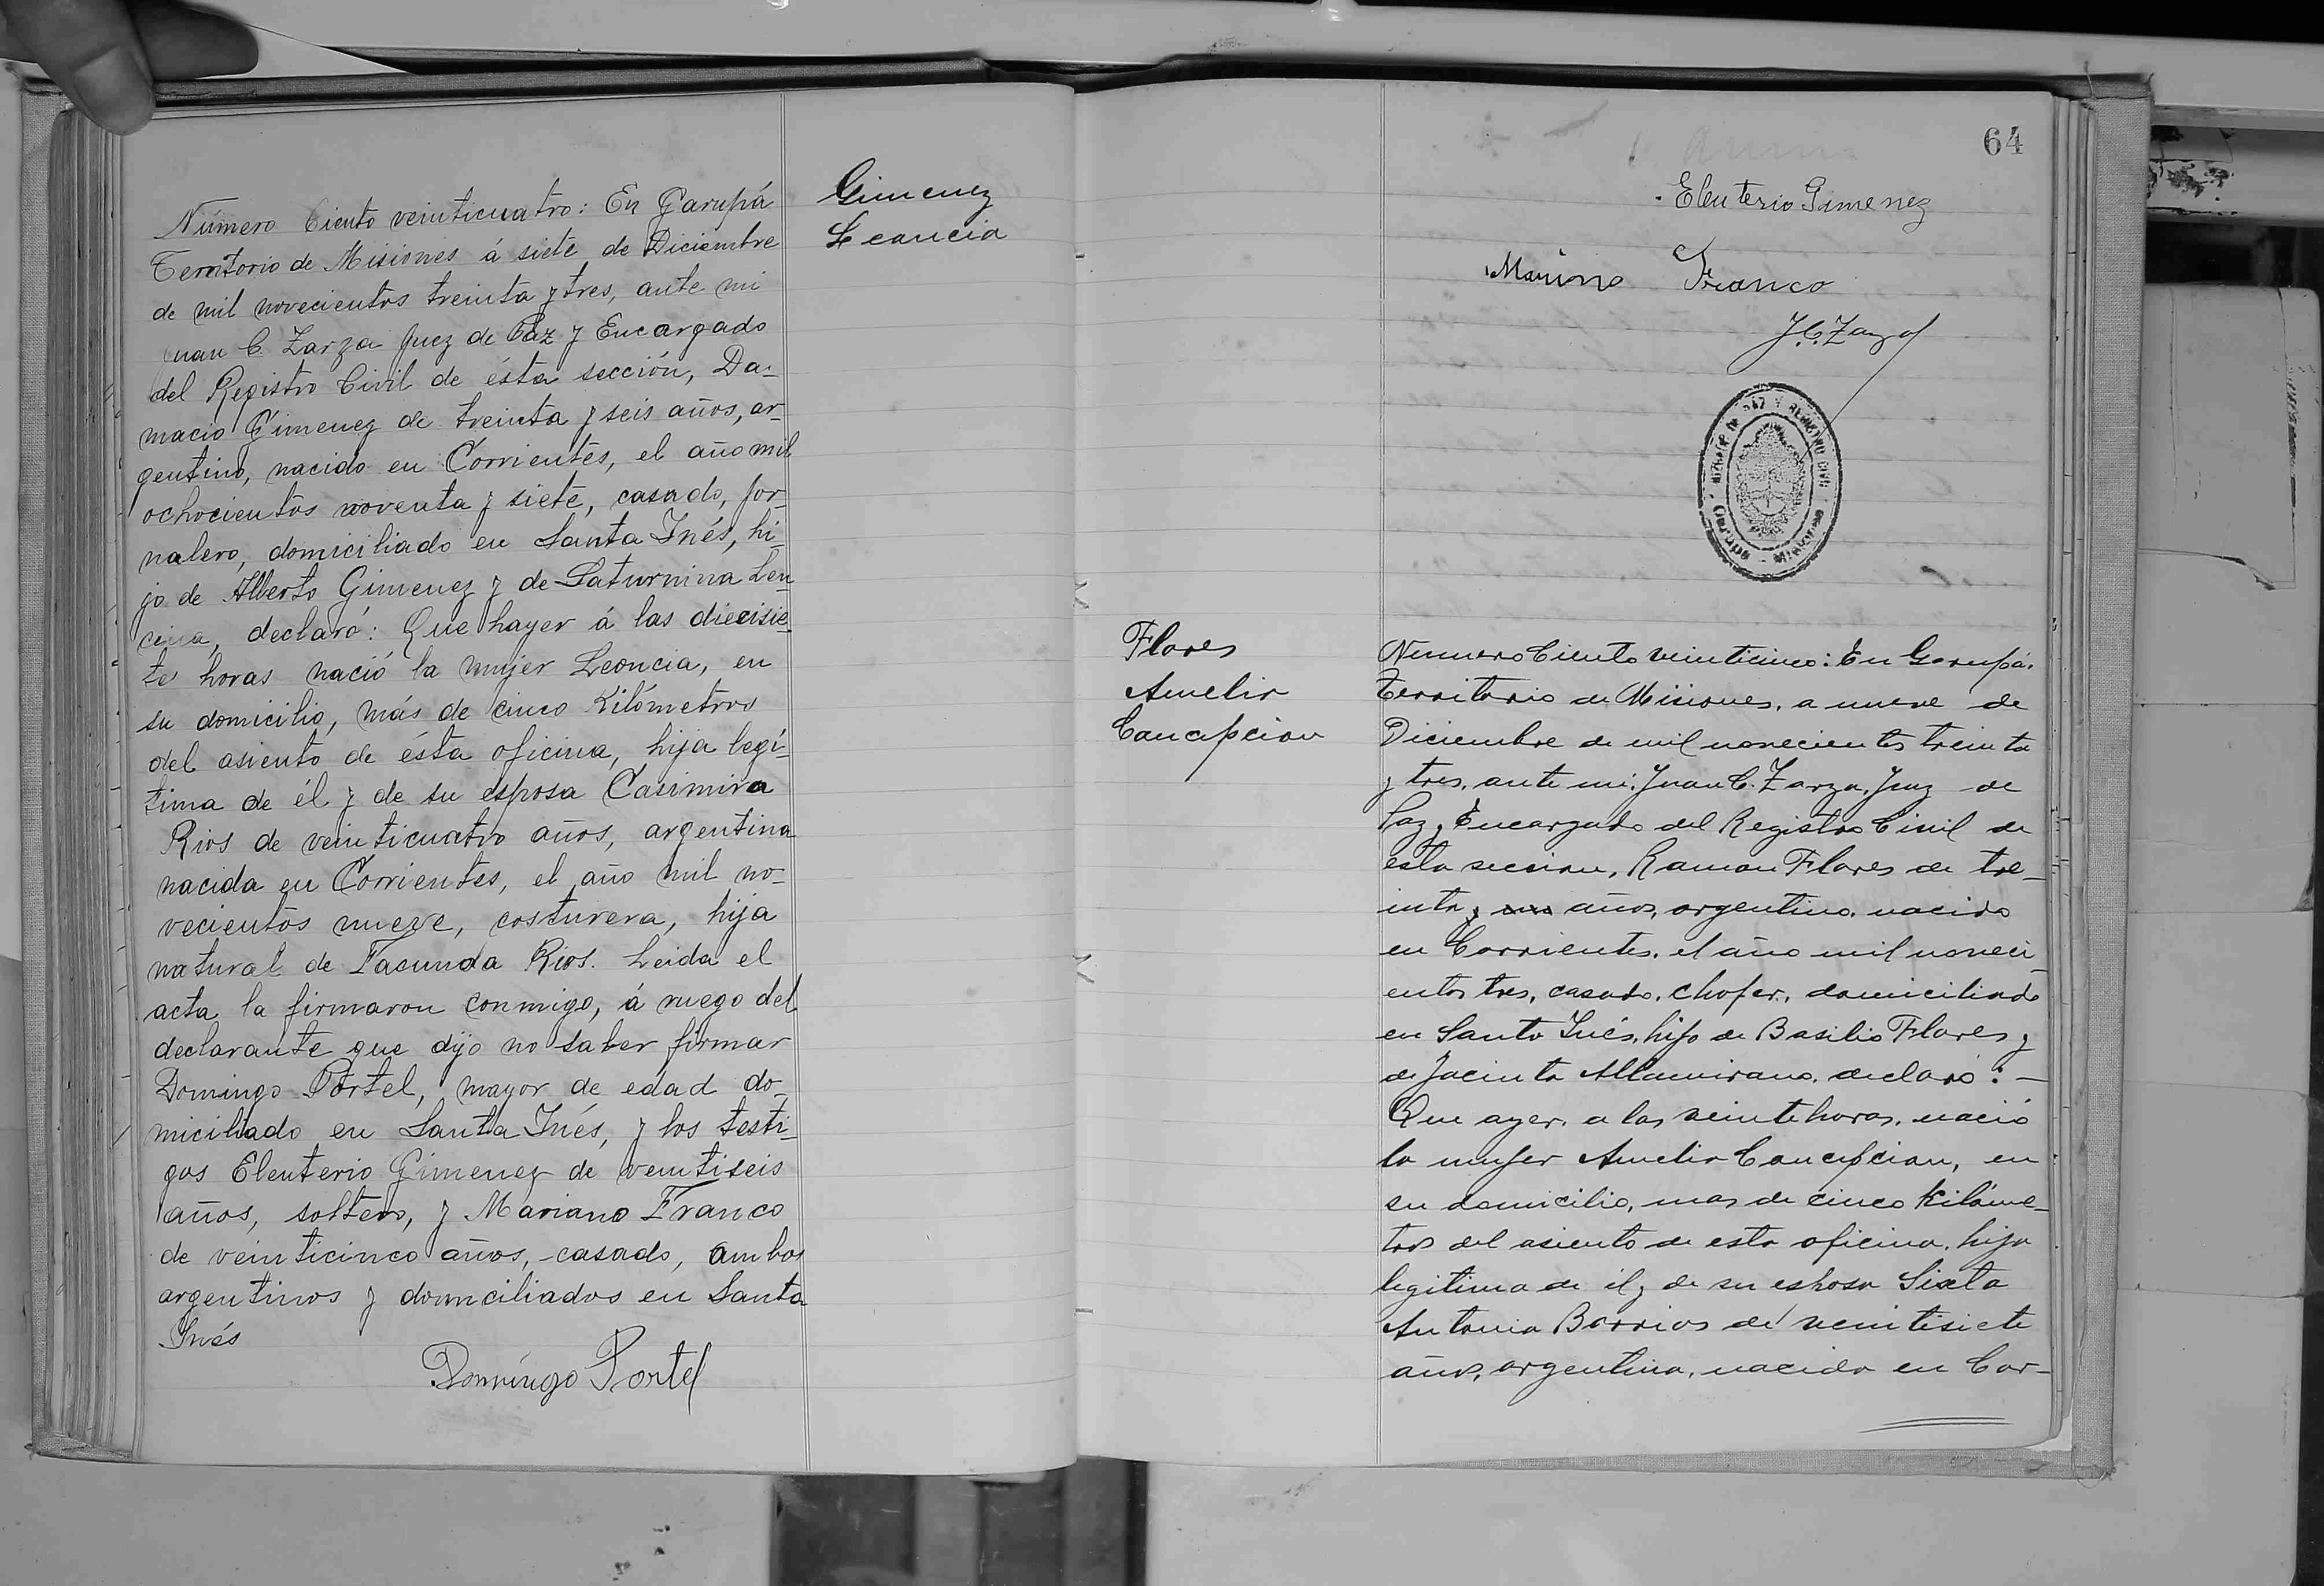 Número Ciento veinticuatro: En Garupá
Territorio de Misiones á siete de Diciembre
de mil novecientos treinta y tres, ante mi
Juan C. Zarza Juez de Paz y Encargado
del Registro Civil de ésta sección, Da-
macio Gimenez de treinta y seis años, ar-
gentino, nacido en Corrientes, el año mil
ochocientos noventa y siete, casado, jor-
nalero, domiciliado en Santa Inés, hi-
jo de Alberto Gimenez y de Saturnina Len
cina, declaró: Que hayer á las diecisie-
te horas nació la mujer Leoncia, en
su domicilio, más de cinco Kilómetros
del asiento de ésta oficina, hija legí-
tima de él y de su esposa Casimira
Rios de veinticuatro años, argentina
nacida en Corrientes, el año mil no-
vecientos nueve, costurera, hija
natural de Facunda Rios. Leida el
acta la firmaron conmigo, á ruego del
declarante que dijo no saber firmar
Domingo Portel, mayor de edad do-
miciliado en Santa Inés, y los testi-
gos Eleuterio Gimenez de veintiseis
años, soltero, y Mariano Franco
de veinticinco años, casado, ambos
argentinos y domiciliados en Santa
Inés
Domingo Portel
Gimenez
Leoncia
64
Eleuterio Gimenez
Marino Franco
J.C. Zarza
JUZGADO DE PAZ Y REGISTRO CIVIL
GARUPA - MISIONES
Flores
Amelia
Concepcion
Numero Ciento veinticinco: En Garupá.
Territorio de Misiones, a nueve de
Diciembre de mil novecientos treinta
y tres, ante mi: Juan C. Zarza, Juez de
Paz y Encargado del Registro Civil de
esta seccion, Ramon Flores de tre-
inta y años, argentino, nacido
en Corrientes, el año mil noveci-
entos tres, casado, chofer, domiciliado
en Santa Inés, hijo de Basilio Flores y
de Jacinta Altamirano, declaró: -
Que ayer, a las veinte horas, nació
la mujer Amelia Concepcion, en
su domicilio, mas de cinco kilóme-
tros del asiento de esta oficina, hija
legitima de él y de su eshosa Sixta
Antonia Barrios de veintisiete
años, argentina, nacida en Cor-